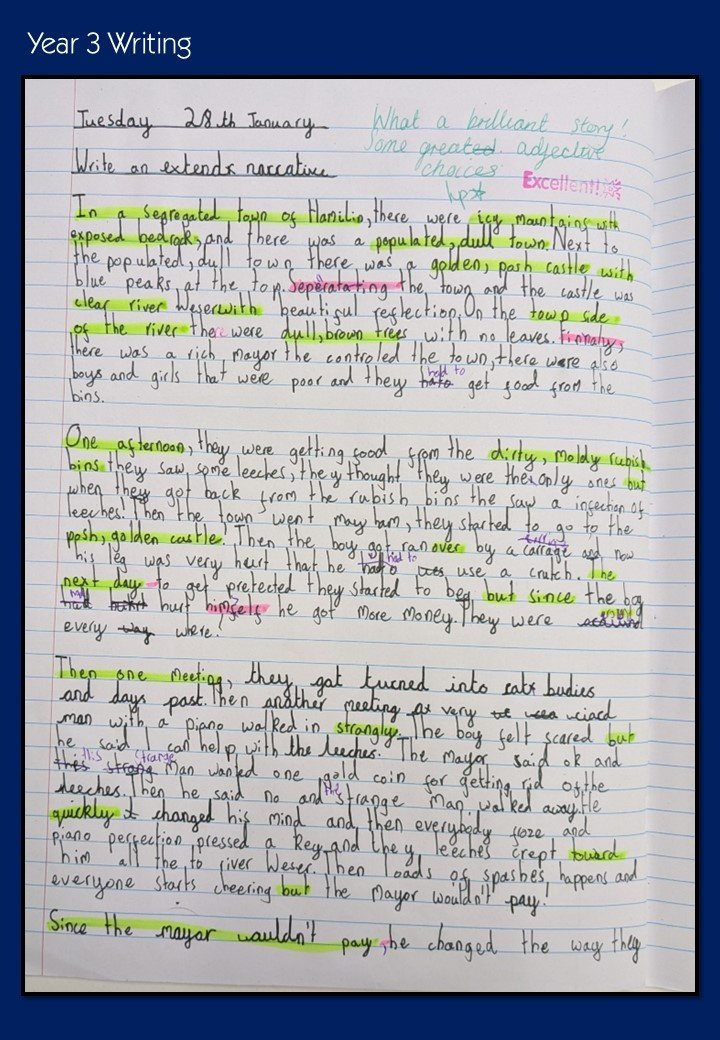 Year 3 Writing
Tuesday 28th January
What a brilliant story!
Some great adjective
choices
Write an extend narrative
Excellent!
In a segregated town of Hamilin, there were icy mountains with
exposed bedrock, and there was a populated, dull town. Next to
the populated, dull town there was a golden, posh castle with
blue peaks, at the top. Seperatating the town and the castle was
clear river Weser with beautiful reflection. On the town side
of the river there were dull, brown trees with no leaves. Finnaly,
there was a rich mayor the controled the town, there were also
boys and girls that were poor and they had to get food from the
bins.
One afternoon, they were getting food from the dirty, moldy rubish
bins they saw some leeches, they thought they were the only ones but
when they got back from the rubish bins the saw a infection of
leeches! Then the town went may ham, they started to go to the
posh, golden castle. Then the boy got ran over by a carrage and now
his leg was very hurt that he had to use a crutch. The
next day to get pretected they started to beg but since the boy
had hurt himself he got more money. They were around
every where!
Then one meeting, they got turned into budies
and days past. Then another meeting a very wiard
man with a piano walked in strangly. The boy felt scared but
he said I can help with the leeches. The Mayor said ok and
this strange Man wanted one gold coin for getting rid of the
leeches. Then he said no and the strange man walked away. He
quickly changed his mind and then everybody froze and
piano perfection pressed a key and they leeches crept toward
him all the to river Weser. Then loads of spashes happens and
everyone starts cheering but the Mayor wouldn't pay!
Since the mayor wouldn't pay, he changed the way they